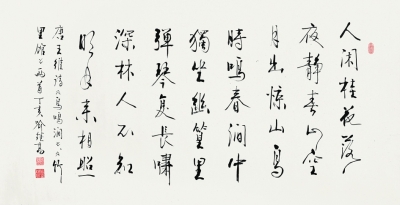 人闲桂花落
夜静春山空
月出惊山鸟
時鳴春澗中
獨坐幽篁里
彈琴复長嘯
深林人不知
明月来相照
唐王維詩鳥鳴澗竹
里館兩首丁亥